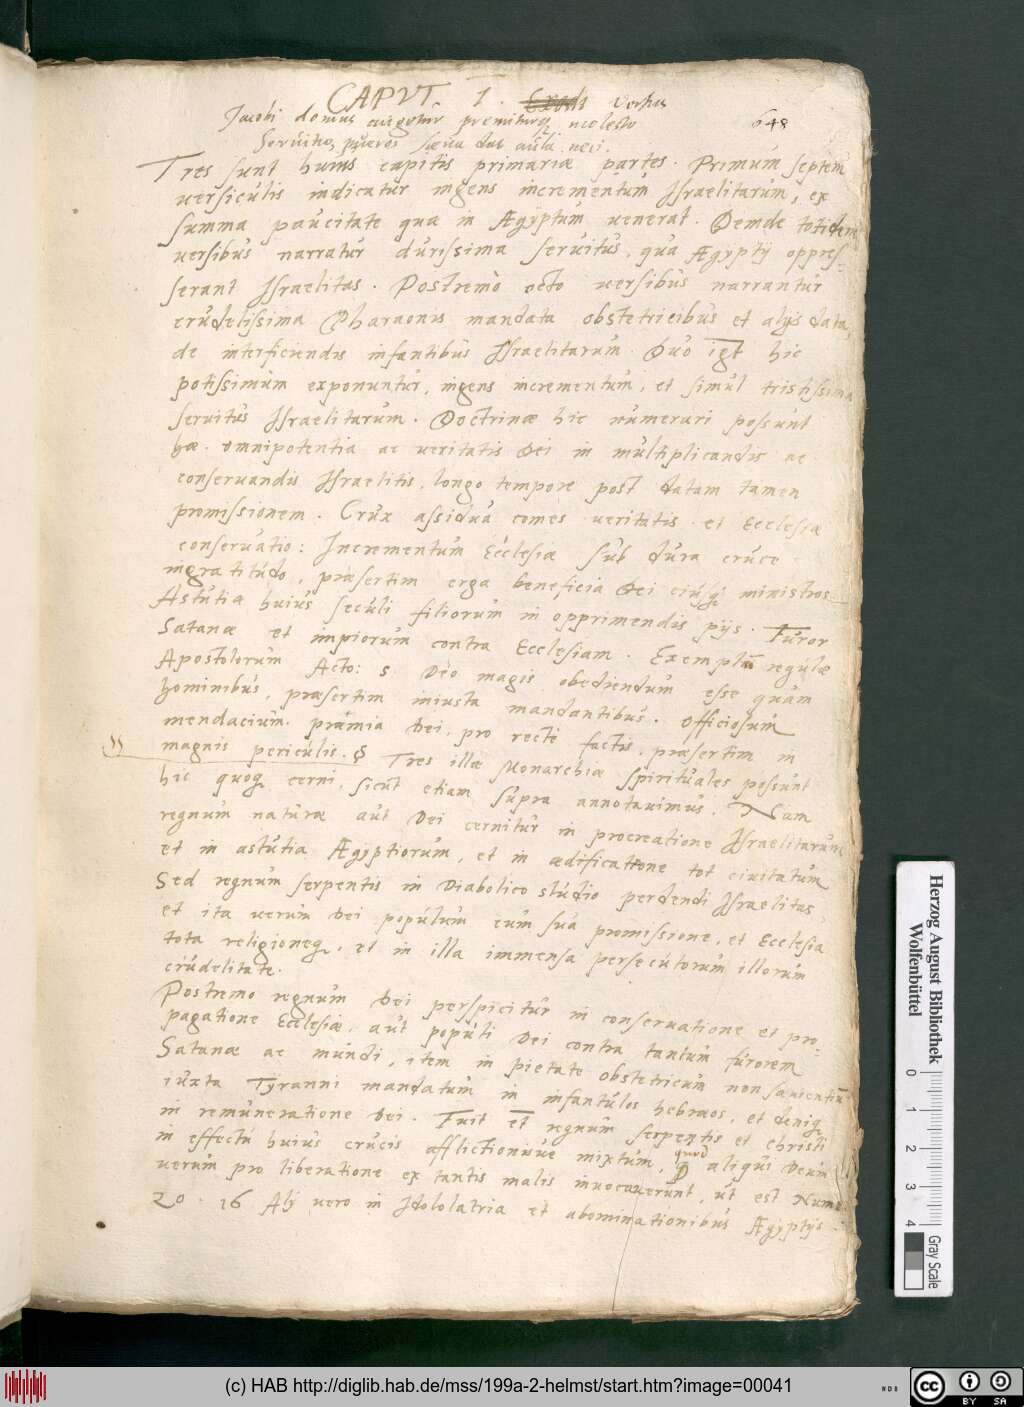 CAPVT 1. Exodi Versus
Jacobi domus augetur premiturq scelesto
Servitio, pueros sæva dat aula neci.
648
Tres sunt huius capitis primariæ partes. Primùm septem
versiculis indicatur ingens incrementum Israelitarum, ex
summa paucitate qua in Ægyptum venerat. Deinde totidem
versibus narratur durissima servitus, qua Ægyptij oppres-
serant Israelitas. Postremò octo versibus narrantur
crudelissima Pharaonis mandata obstetricibus et alijs data,
de interficiendis infantibus Israelitarum. Duo igr hic
potissimùm exponuntur, ingens incrementum, et simul tristissima
servitus Israelitarum. Doctrinæ hic numerari possunt
hæ. omnipotentia ac veritatis Dei in multiplicandis ac
conservandis Israelitis, longo tempore post datam tamen
promissionem. Crux assidua comes veritatis et Ecclesiæ
conservatio: Incrementum Ecclesiæ sub dura cruce
ingratitudo, præsertim erga beneficia Dei eiusq ministros
Astutia huius seculi filiorum in opprimendis pijs. Furor
Satanæ et impiorum contra Ecclesiam. Exemplū regulæ
Apostolorum Acto: 5 Deo magis obediendum esse quàm
hominibus, præsertim iniusta mandantibus. Officiosum
mendacium. præmia Dei, pro rectè factis, præsertim in
magnis periculis. § Tres illæ Monarchiæ spirituales possunt
hic quoq cerni, sicut etiam supra annotavimus. Nam
regnum naturæ aut Dei cernitur in procreatione Israelitarum
et in astutia Ægyptiorum, et in ædificatione tot civitatum
Sed regnum serpentis in Diabolico studio perdendi Israelitas,
et ita verùm Dei populum cum sua promissione, et Ecclesia
tota religioneq, et in illa immensa persecutorum illorum
crudelitate.
Postremo regnum Dei perspicitur in conservatione et pro-
pagatione Ecclesiæ, aut populi Dei contra tantum furorem
Satanæ ac mundi, item in pietate obstetricum non sævientiū
iuxta Tyranni mandatum in infantulos hebræos, et deniq
in remuneratione Dei. Fuit et regnum serpentis et Christi
in effectu huius crucis afflictionisve mixtum, quod aliqui Deum
verum pro liberatione ex tantis malis invocaverunt, ut est Nume
20. 16 Alij vero in Idololatria et abominationibus Ægyptijs
Herzog August Bibliothek
Wolfenbüttel
0 1 2 3 4
Gray Scale
(c) HAB http://diglib.hab.de/mss/199a-2-helmst/start.htm?image=00041
cc BY SA